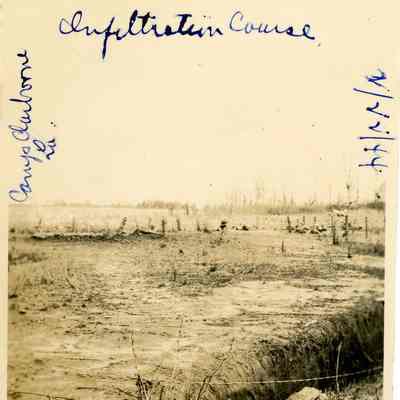 Infiltration Course.
Camp Claiborne
La.
2/22/44